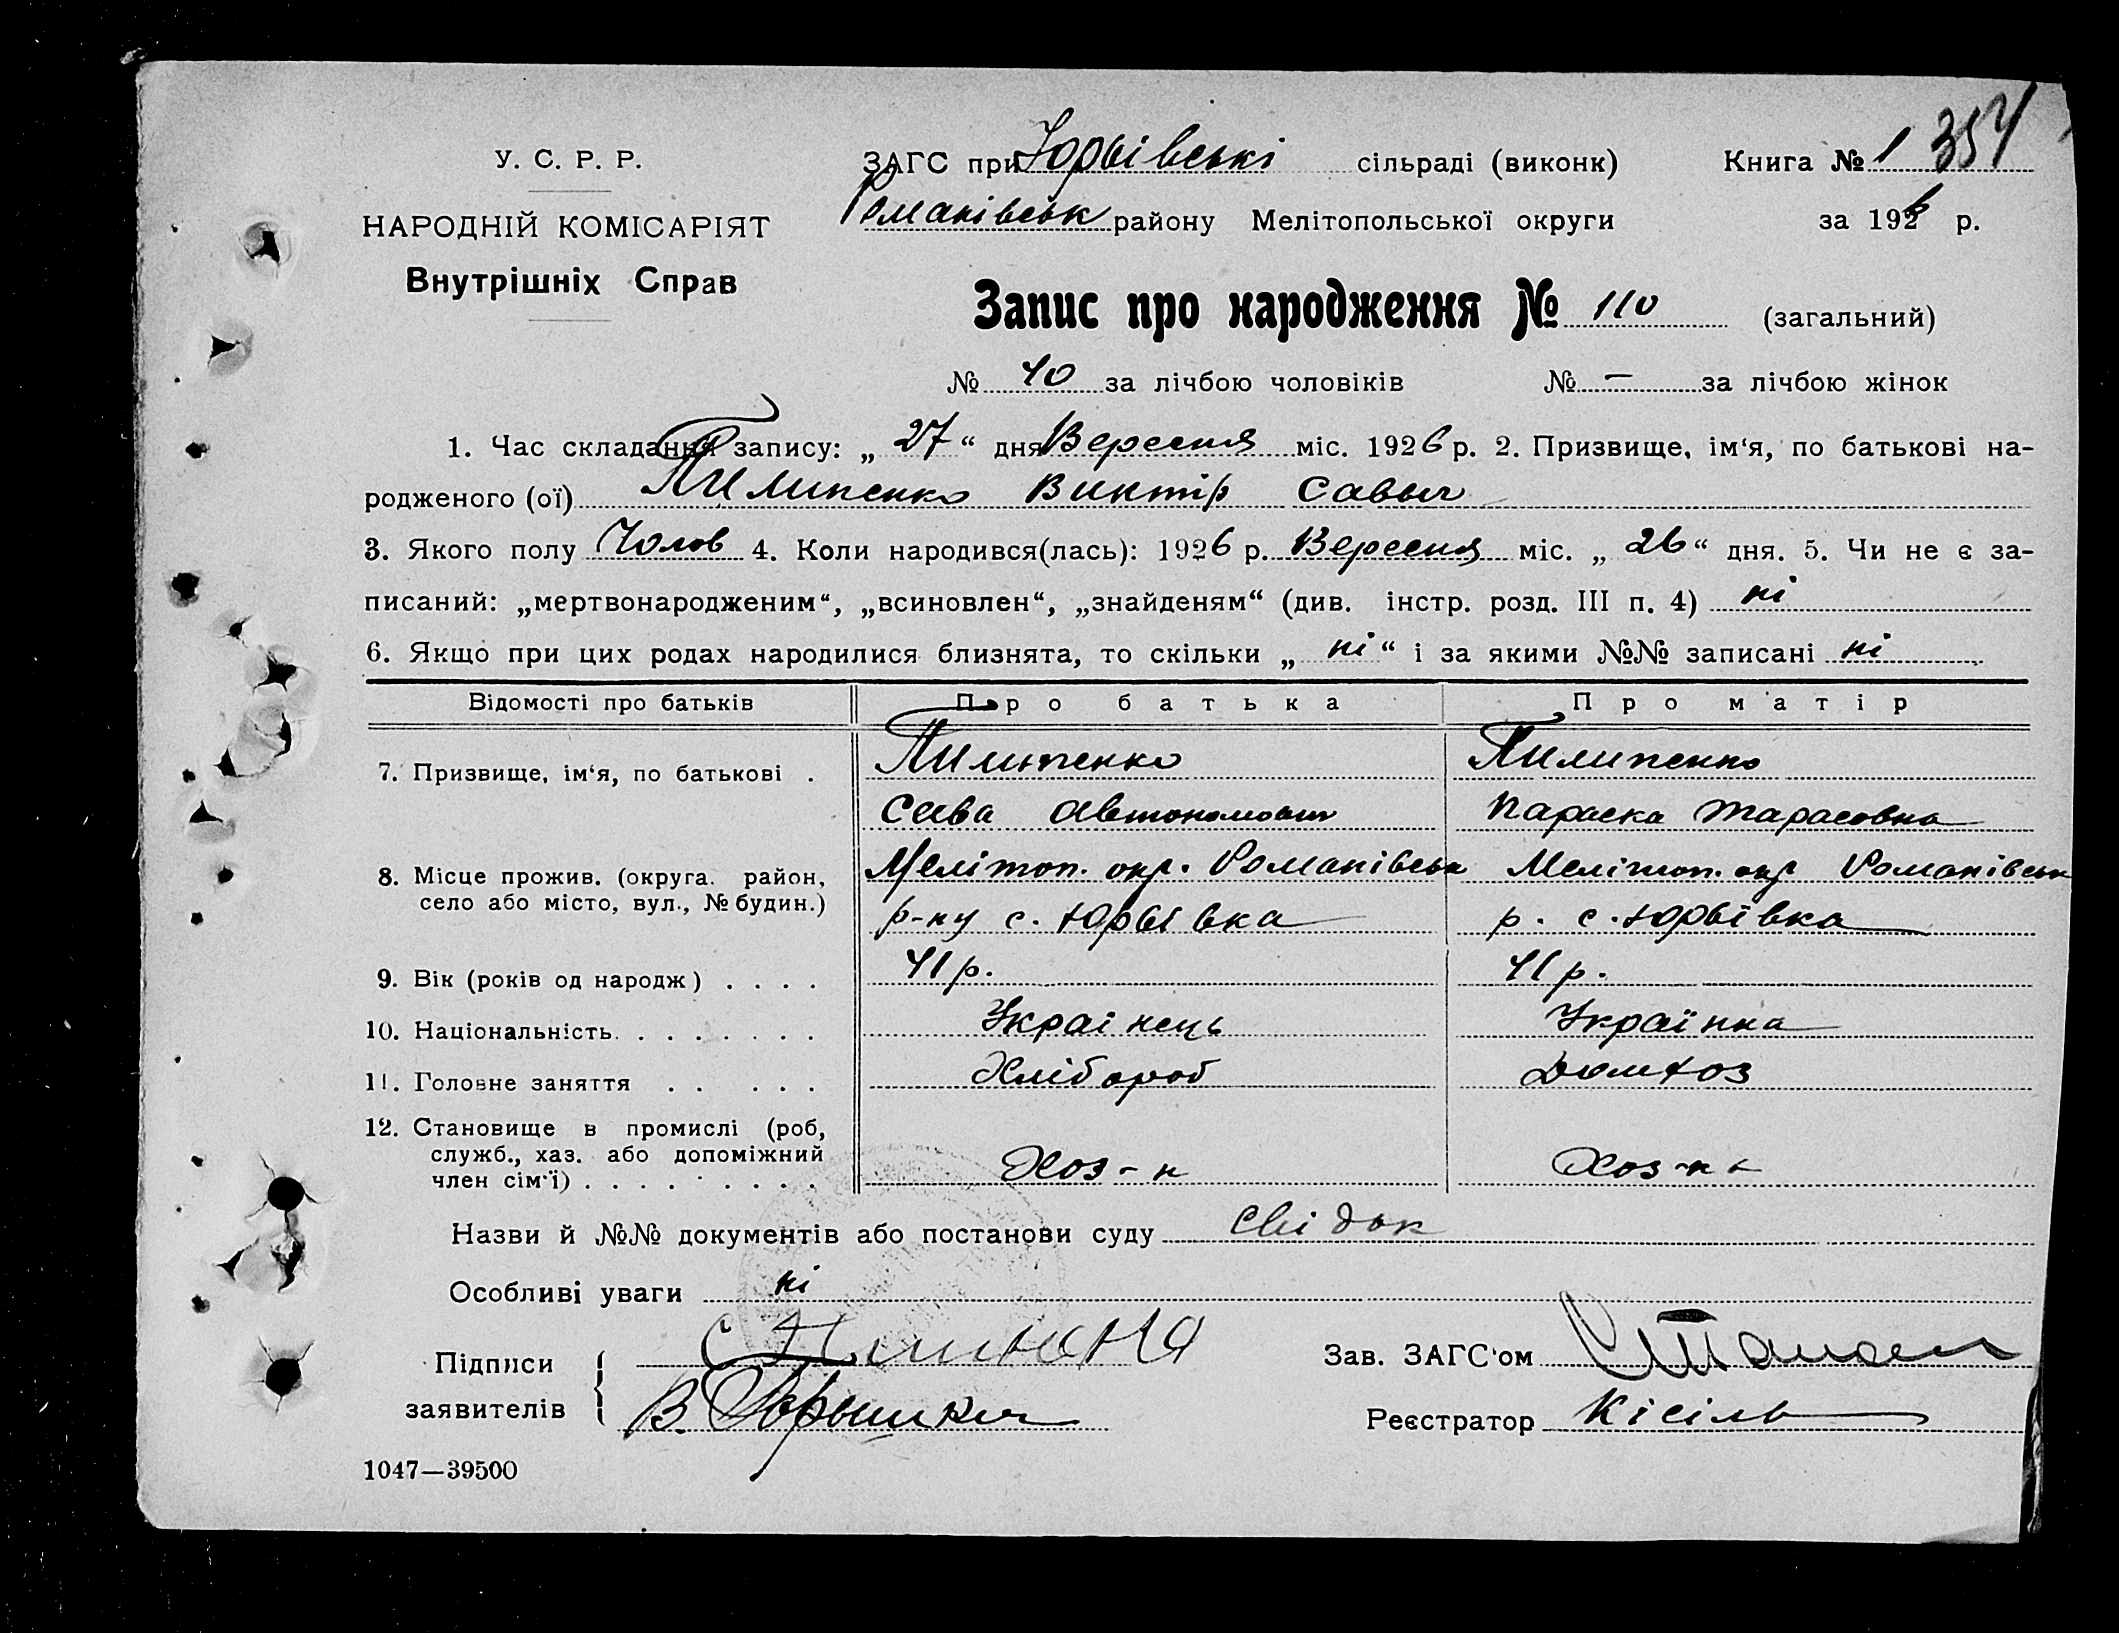 354
У. С. Р. Р.
ЗАГС при Юрьївські сільраді (виконк) Книга № 1
НАРОДНІЙ КОМІСАРІЯТ
Романівськ району Мелітопольської округи за 1926 р.
Внутрішніх Справ
Запис про народження № 110 (загальний)
№ 40 за лічбою чоловіків № — за лічбою жінок
1. Час складання запису: „ 27 “ дня Вересня міс. 1926 р. 2. Призвище, ім‘я, по батькові на-
родженого (ої) Пилипенко Виктір Савыч
3. Якого полу Чолов 4. Коли народився(лась): 1926 р. Вересня міс. „ 26 “ дня. 5. Чи не є за-
писаний: „мертвонародженим“, „всиновлен“, „знайденям“ (див. інстр. розд. III п. 4) ні
6. Якщо при цих родах народилися близнята, то скільки „ ні “ і за якими №№ записані ні
Відомості про батьків Про батька Про матір
7. Призвище, ім‘я, по батькові . Пилипенко Пилипенко
Сава Автономович Параска Тарасовна
8. Місце прожив. (округа. район, Мелітоп. окр. Романівськ Мелітоп. окр Романівськ
село або місто, вул., № будин.) р-ну с. Юрьївка р. с. Юрьївка
9. Вік (років од народж) . . . . 41 р. 41 р.
10. Національність. . . . . . . . Украінець Українка
11. Головне заняття . . . . . Хлібороб Домхоз
12. Становище в промислі (роб,
служб., хаз. або допоміжний
член сім‘ї) . . . . . . . . . Хоз-н Хоз-ка
Назви й №№ документів або постанови суду Свідок
Особливі уваги ні
Підписи
Зав. ЗАГС‘ом
заявителів В.
Реєстратор Кісіль
1047—39500